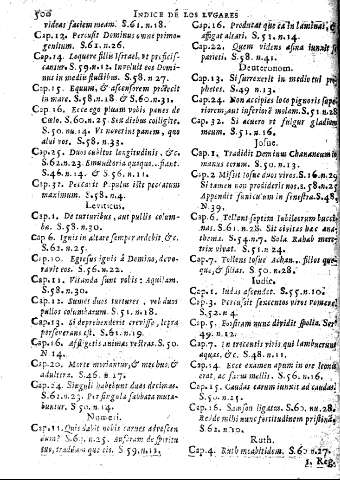 500 INDICE DE LOS LVGARES
videas faciem meam. S.61.n.18.
Cap.12. Percusit Dominus omne primo-
genitum. S.61.n.26.
Cap.14. Loquere filijs Israel. ut
Cap.15. Equum, & ascensorem proiecit
in mare. S.58.n.18 & S.60.n.31.
Cap.16. Ecce ego pluam vobis panes de
Cœlo. S.60.n.25. Sex diebus colligite.
S.50.nu.14. Vt noverint panem, quo
alui vos. S.58.n.33.
Cap.25. Duos cubitos longitudinis, &c.
S.46.n.14. & S.56.n.11.
Cap.32. Peccavit populus iste peccatum
maximum. S.58.n.4.
Leviticus.
Cap.1. De turturibus, aut pullis colum-
bæ. S.58.n.30.
Cap.6. Ignis in altare semper ardebit, &c.
S.62.n.25.
Cap.10. Egresus ignis à Domino, devo-
ravit eos. S.56.n.22.
Cap.11. Vitanda sunt vobis: Aquilam.
S.58.n.30.
Cap.12. Sumet duos turtures, vel duos
pullos columbarum. S.51.n.18.
Cap.13. Si deprehenderit crevisse, lepra
perseverans est. S.61.n.19.
Cap.16. Affligetis animas vestras. S.50.
N.14.
Cap.20. Morte moriantur, & mœchus, &
adultera. S.46.n.17.
Cap.24. Singuli habebunt duas decimas.
S.62.n.23. Per singula sabbata muta-
buntur. S.50.n.14.
Numeri.
Cap.11. Quis dabit nobis carnes ad vescen-
dum? S.60.n.25. Auferam de spiritu
tuo, tradam que eis. S.59.n.11.
Cap.16. Producat que ea in laminas, &
affigat altari. S.51.n.14.
Cap.22. Quem videns asina iunxit se
parieti. S.58.n.41.
Deuteronom.
Cap.13. Si surrexerit in medio tui pro-
phetes. S.49.n.13.
Cap.24. Non accipies loco pignoris supe-
riorem, aut inferiorem molam. S.51.n.28
Cap.32. Si acuero ut fulgur gladium
meum. S.51.n.16.
Josue.
Cap.1. Tradidit Dominus Chananeum in
manus eorum. S.50.n.13.
Cap.2. Misit Iosue duos viros. S.16.n.29
Si tamen non prodideris nos. S.58.n.25
Appendit funiculum in fenestra. S.48.
N.39.
Cap.6. Tollens septem
nas. S.61.n.28. Sit civitas hæc ana-
thema. S.54.n.7. Sola Rahab mere-
trix vivat. S.51.n.24.
Cap.7. Tollens Iosue Achan.. filios quo-
que, & filias. S.50.n.28.
Iudic.
Cap.1. Iudas ascendet. S.55.n.10.
Cap.3. Percussit sexcentos viros vomere.
S.52.n.4.
Cap.5.
49.n.12.
Cap.7. In trecentis viris qui lambuerunt
aquas, &c. S.48.n.11.
Cap.14. Ecce examen apum in ore leonis
erat, ac favus mellis. S.56.n.16.
Cap.15. Caudas earum iunxit ad caudas.
S.50.n.21.
Cap.16. Samson ligatum. S.60.nu.28.
Redde mihi nunc fortitudinem pristinam
S.62.n.30.
Ruth.
Cap.4. Ruth moabitidem. S.60.n.27.
1. Reg.